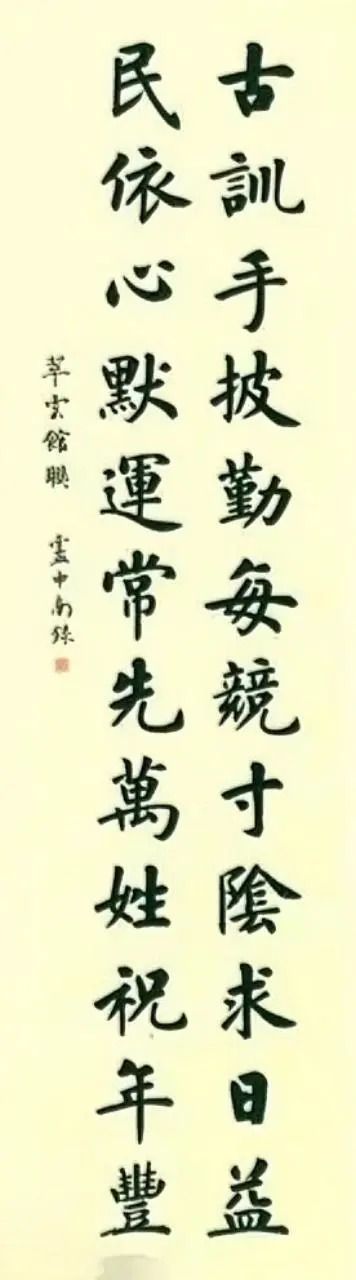 古訓手披勤每競寸陰求日益
民依心默運常先萬姓祝年豐
萃雲館聯 盧中南錄